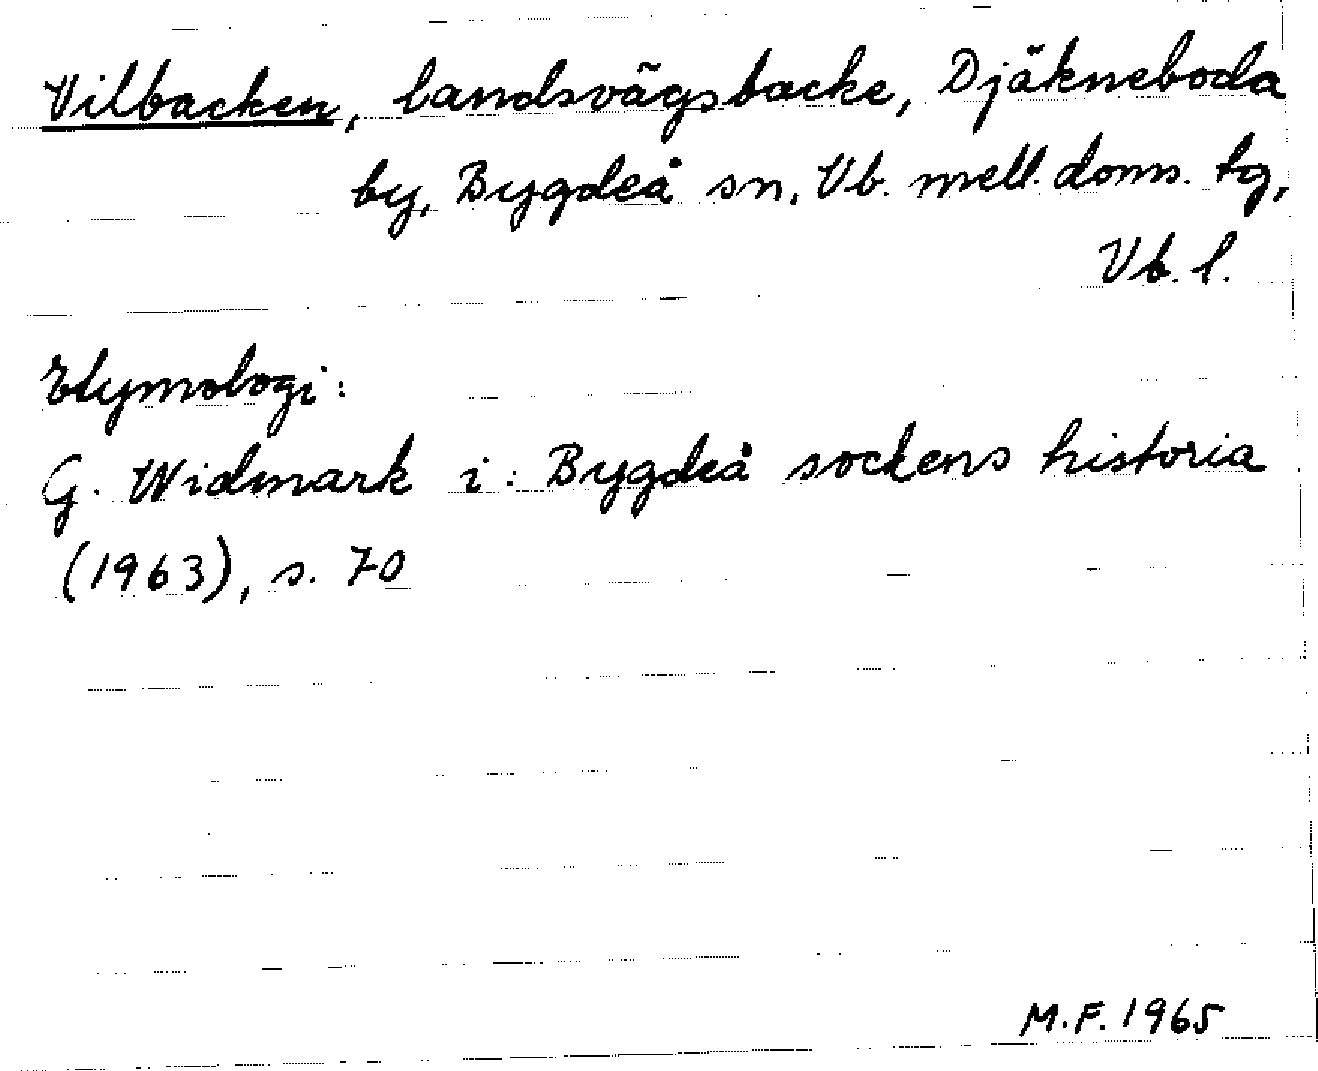 Vilbacken, landsvägsbacke, Djäkneboda
by, Bygdeå sn, Vb. mell. doms. tg,
Vb. l.
Etymologi:
G. Widmark i: Bygdeå sockens historia
(1963), s. 70
M.F. 1965